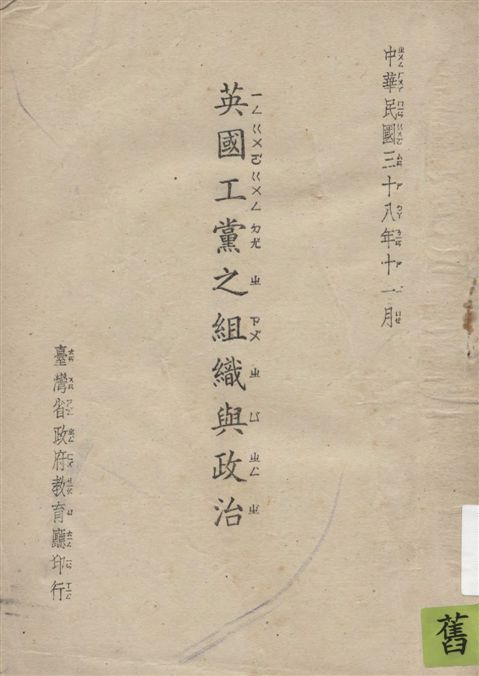 中華民國三十八年十一月
英國工黨之組織與政治
臺灣省政府教育廳印行
舊